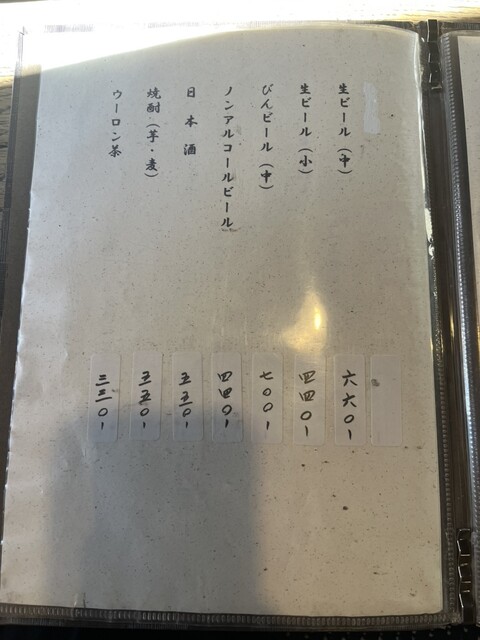 生ビール(中) 六六〇-
生ビール(小) 四四〇-
びんビール(中) 七〇〇-
ノンアルコールビール 四四〇-
日本酒 五五〇-
焼酎(芋・麦) 五五〇-
ウーロン茶 三三〇-